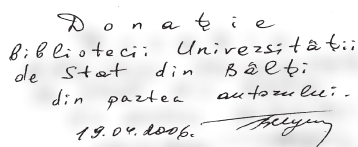 Donație
Bibliotecii Universității
de Stat din Bălți
din partea autorului.
19.04.2006.